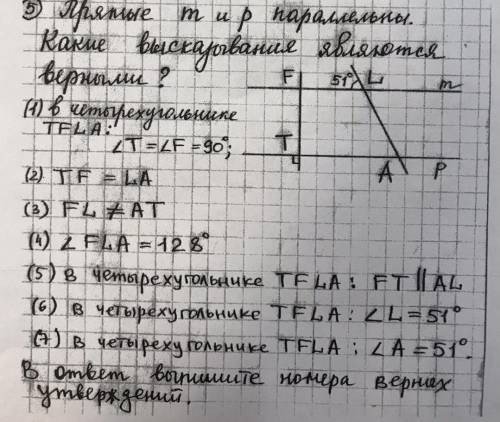 ⑤ Прямые m и p параллельны.
Какие высказывания являются
верными?
(1) в четырехугольнике
TFLA:
∠T = ∠F = 90°;
(2) TF = LA
(3) FL ≠ AT
(4) ∠FLA = 128°
(5) В четырехугольнике TFLA: FT ∥ AL
(6) в четырехугольнике TFLA: ∠L = 51°
(7) в четырехугольнике TFLA: ∠A = 51°.
В ответ выпишите номера верных
утверждений.
F 51° L m
T A P